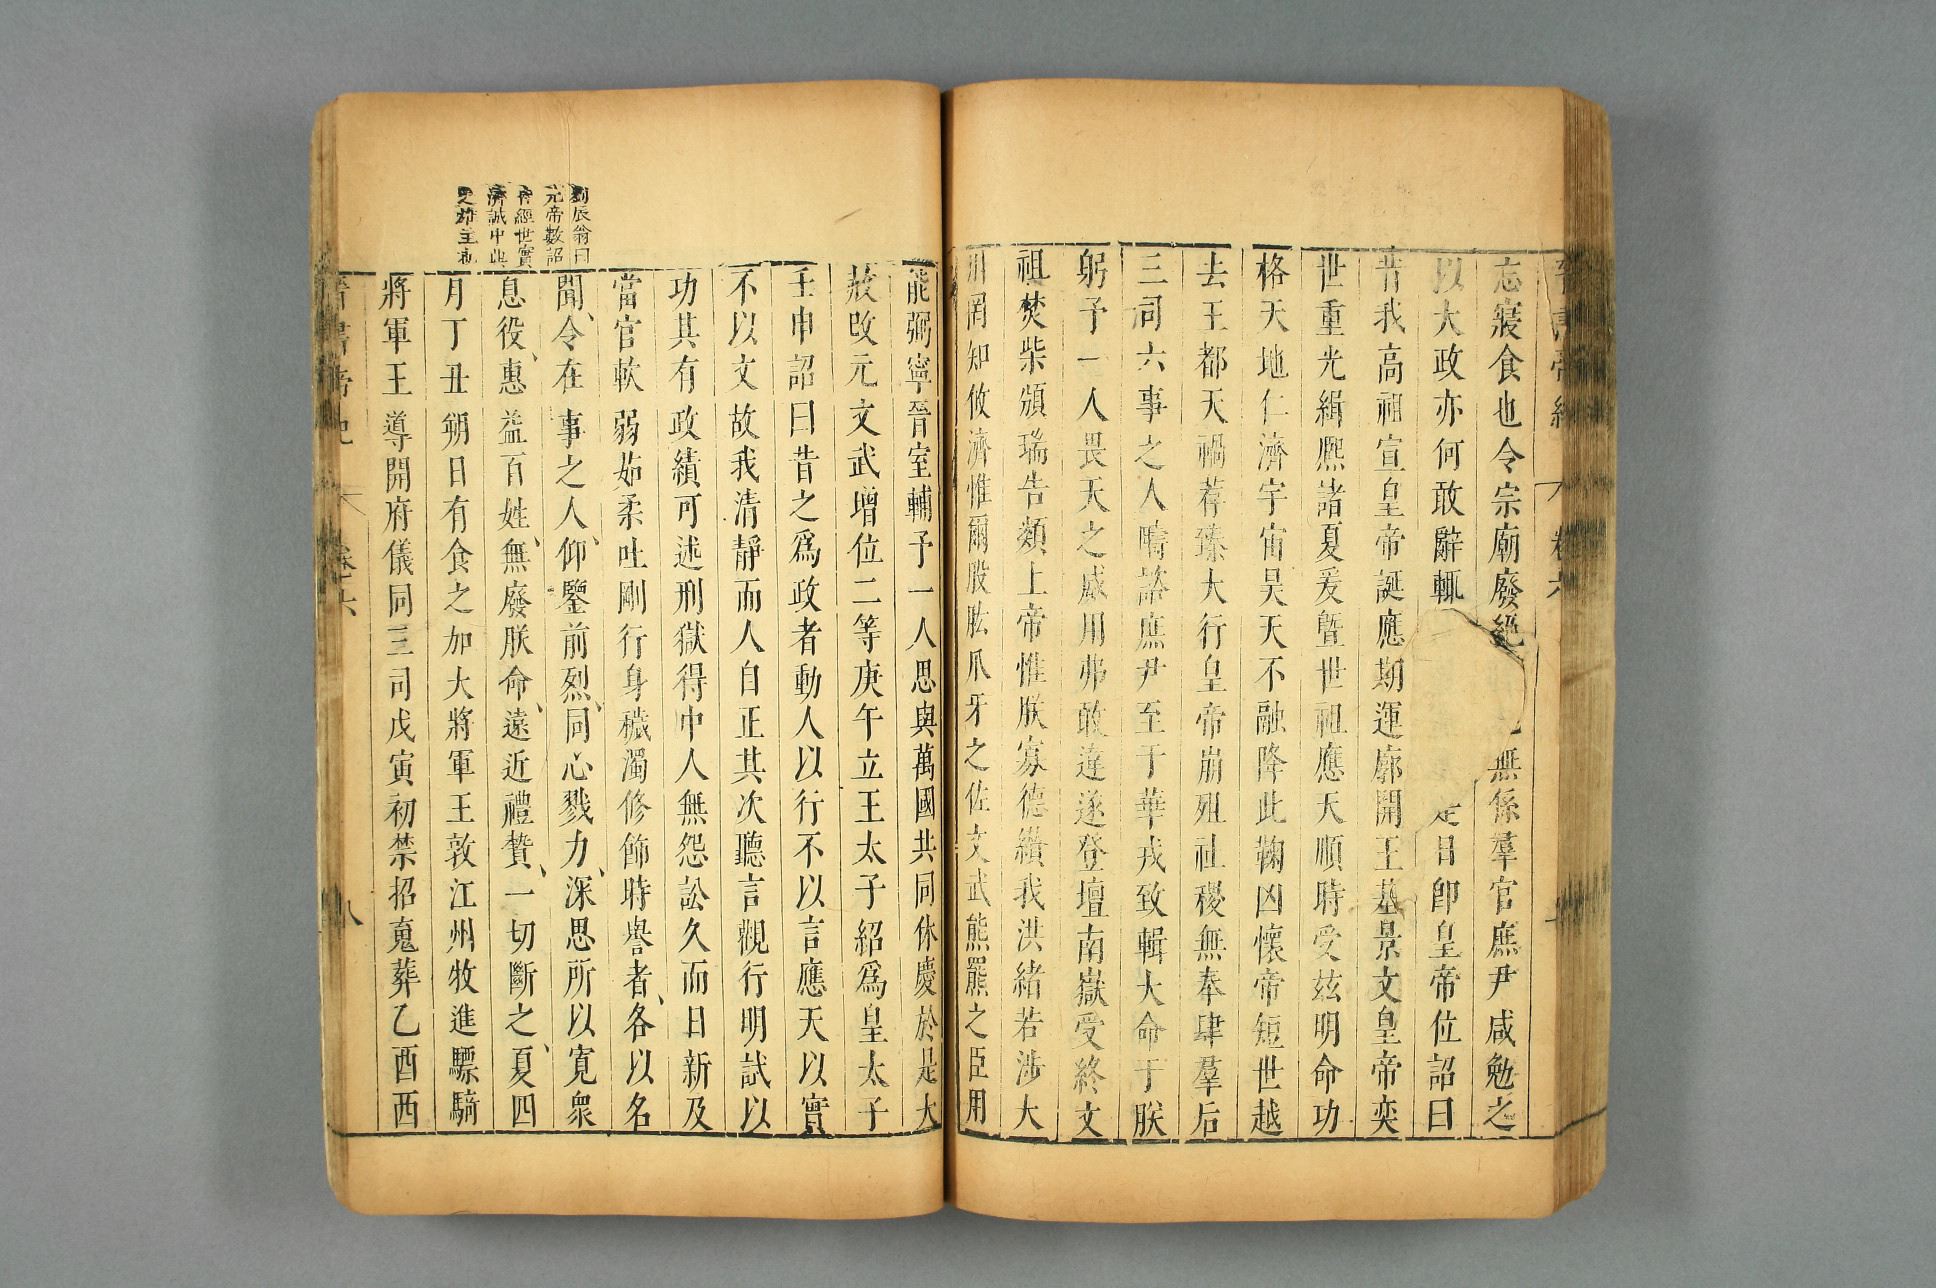 忘寢食也令宗廟廢絕無係羣官庶尹咸勉之
以大政亦何敢辭輒是日卽皇帝位詔曰
昔我高祖宣皇帝誕應期運廓開王基景文皇帝奕
世重光緝熈諸夏爰曁世祖應天順時受兹明命功
格天地仁濟宇宙昊天不融降此鞠凶懷帝短世越
去王都天禍荐臻大行皇帝崩殂社稷無奉肆羣后
三司六事之人疇諮庶尹至于華戎致輯大命于朕
躬予一人畏天之威用弗敢違遂登壇南嶽受終文
祖焚柴頒瑞告類上帝惟朕寡德纘我洪緒若涉大
川罔知攸濟惟爾股肱爪牙之佐文武熊羆之臣用
能弼寧晉室輔予一人思與萬國共同休慶於是大
赦改元文武增位二等庚午立王太子紹爲皇太子
壬申詔曰昔之爲政者動人以行不以言應天以實
不以文故我清靜而人自正其次聽言觀行明試以
功其有政績可述刑獄得中人無怨訟久而日新及
當官軟弱茹柔吐剛行身穢濁修飾時譽者各以名
聞令在事之人仰鑒前烈同心戮力深思所以寬衆
息役惠益百姓無廢朕命遠近禮贄一切斷之夏四
月丁丑朔日有食之加大將軍王敦江州牧進驃騎
將軍王導開府儀同三司戊寅初禁招䰟葬乙酉西
劉辰翁曰
元帝數詔
有經世實
濟誠中興
晉書帝紀
卷六
八